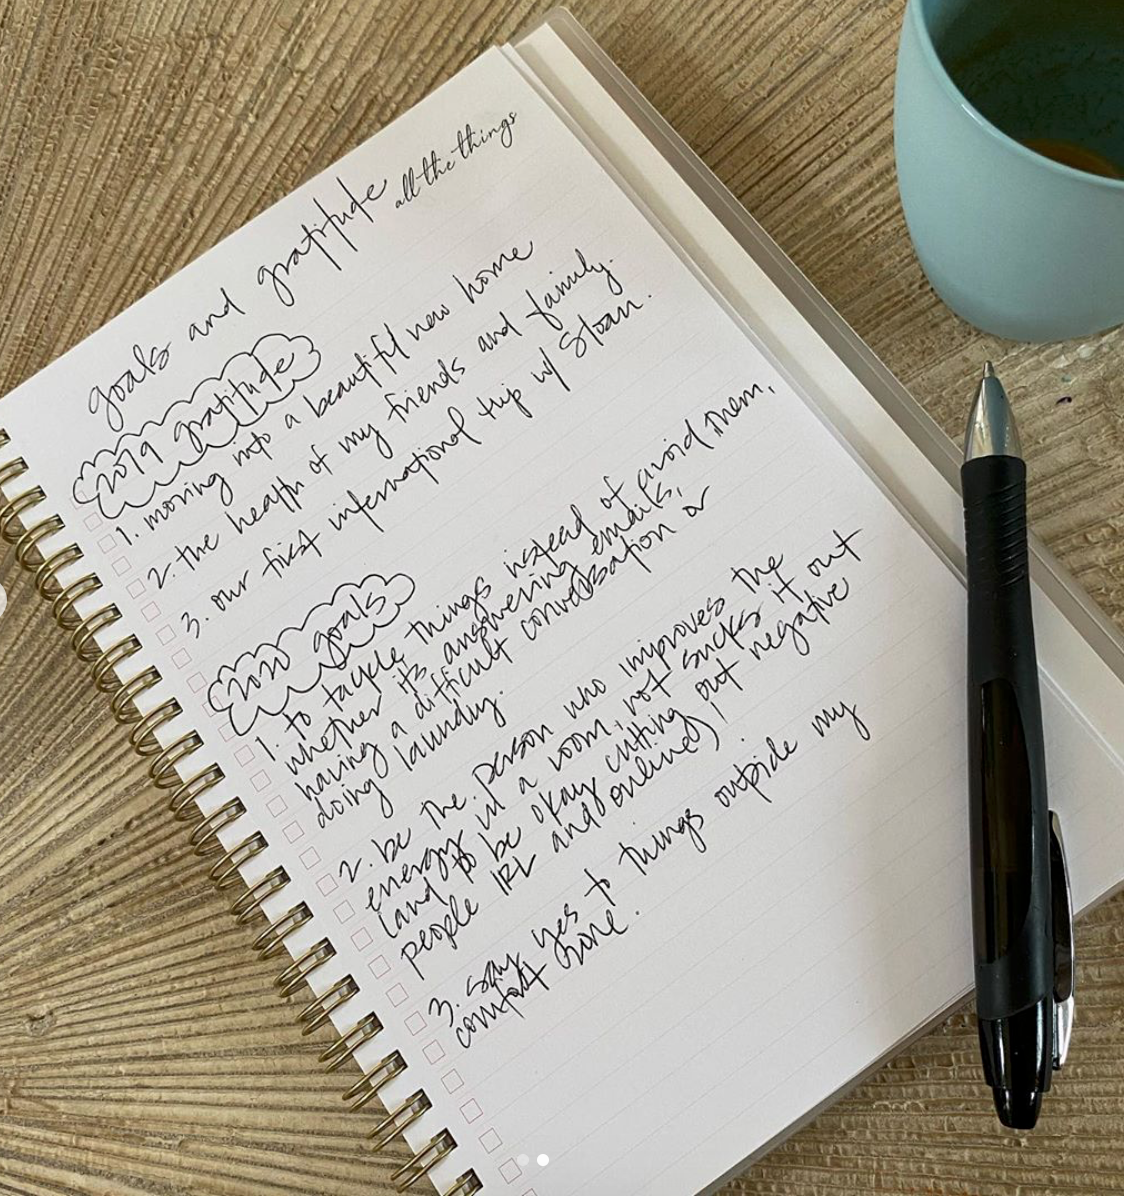 all the things
goals and gratitude
2019 gratitude
1. moving into a beautiful new home
2. the health of my friends and family.
3. our first international trip w/ Sloan.
2020 goals
1. to tackle things instead of avoid them,
whether its answering emails,
having a difficult conversation or
doing laundry.
2. be the person who improves the
energy in a room, not sucks it out
(and to be okay cutting out negative
people IRL and online)!
3. say yes to things outside my
comfort zone.